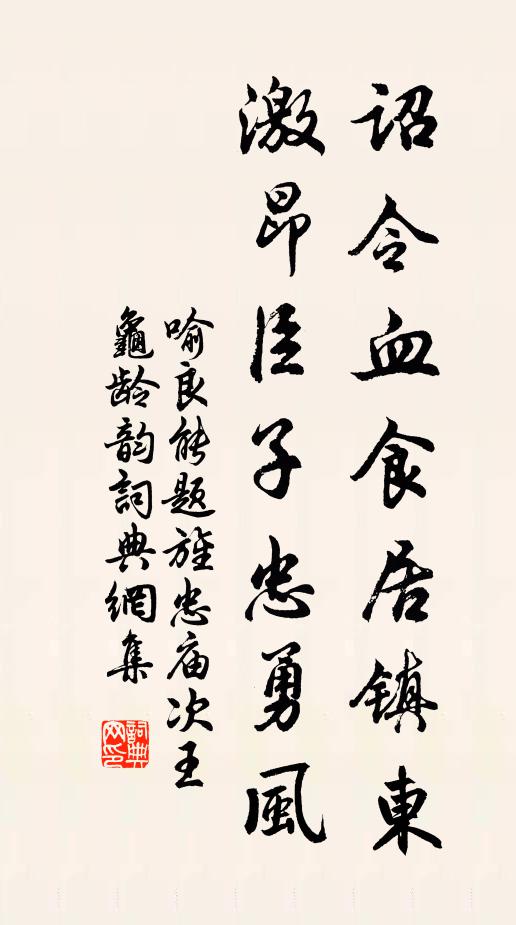 詔令血食居鎮東
激昂臣子忠勇風
喻良能题旌忠庙次王
龜龄韵詞典網集
詞典